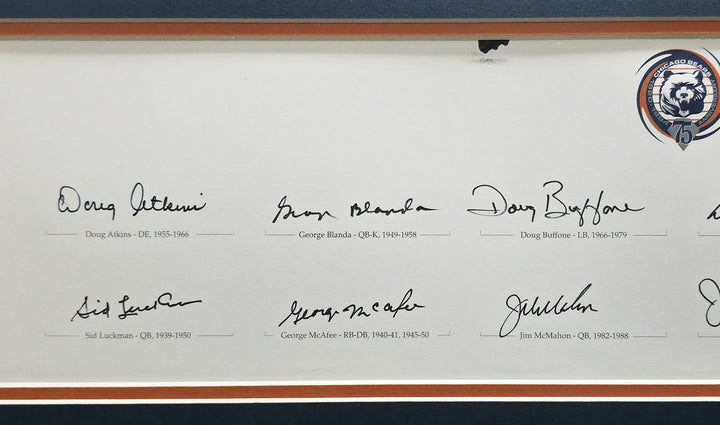 CHICAGO BEARS
75
Doug Atkins George Blanda Doug Buffone
Doug Atkins - DE, 1955-1966 George Blanda - QB-K, 1949-1958 Doug Buffone - LB, 1966-1979
Sid Luckman George McAfee Jim McMahon
Sid Luckman - QB, 1939-1950 George McAfee - RB-DB, 1940-41, 1945-50 Jim McMahon - QB, 1982-1988